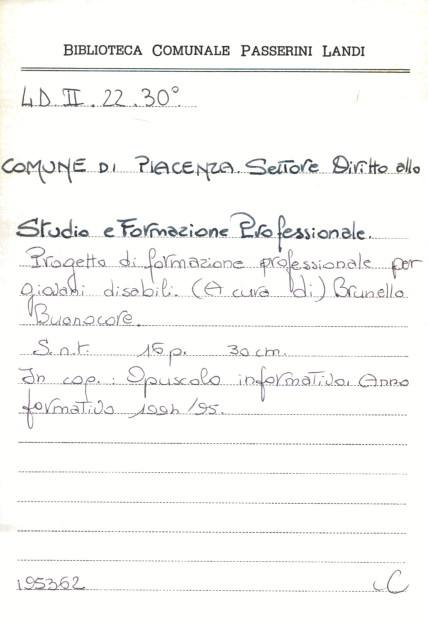 BIBLIOTECA COMUNALE PASSERINI LANDI
4D. II. 22. 30°
COMUNE DI PIACENZA. Settore Diritto allo
Studio e Formazione Professionale.
Progetto di formazione professionale per
giovani disabili. (A cura di) Brunello
Buonocore.
S.n.t. 15 p. 30 cm.
In cop.: Opuscolo informativo. Anno
formativo 1994/95.
195362 C